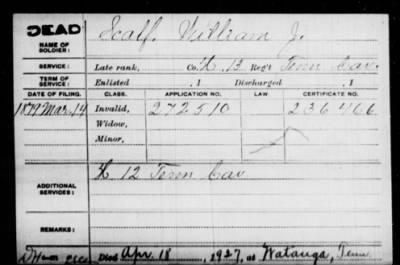 DEAD
NAME OF SOLDIER: Scalf, William J.
SERVICE: Late rank, Co. H, 13 Reg't Tenn Cav.
TERM OF SERVICE: Enlisted , 1 Discharged , 1
DATE OF FILING. CLASS. APPLICATION NO. LAW. CERTIFICATE NO.
1879 Mar. 14 Invalid, 272510 236466
Widow,
Minor,
ADDITIONAL SERVICES: H 12 Tenn Cav
REMARKS:
Died Apr. 18, 1927, at Watauga, Tenn